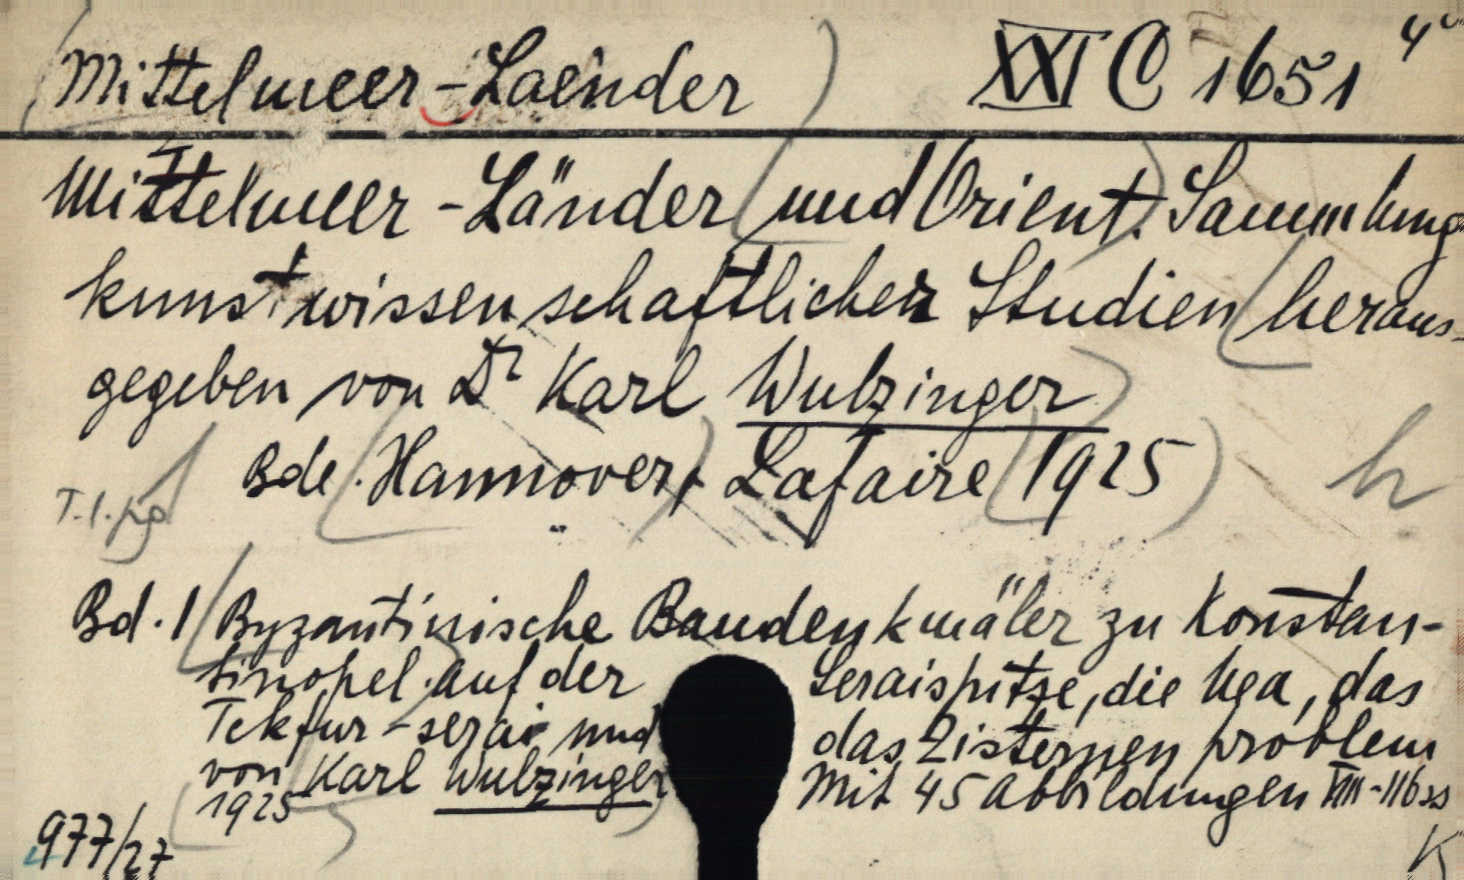 Mittelmeer-Laender XXI C 1651 4°
Mittelmeer-Länder und Orient. Sammlung
kunstwissenschaftlicher Studien heraus-
gegeben von Dr Karl Wulzinger
Bde. Hannover, Lafaire 1925
h
T.1.pg
Bd. 1 Byzantinische Baudenkmäler zu Konstan-
tinopel. Auf der Seraispitze, die Nea, das
Tekfur-serai und das Zisternenproblem
von Karl Wulzinger Mit 45 Abbildungen VIII-116 ss
1925
977/27
K